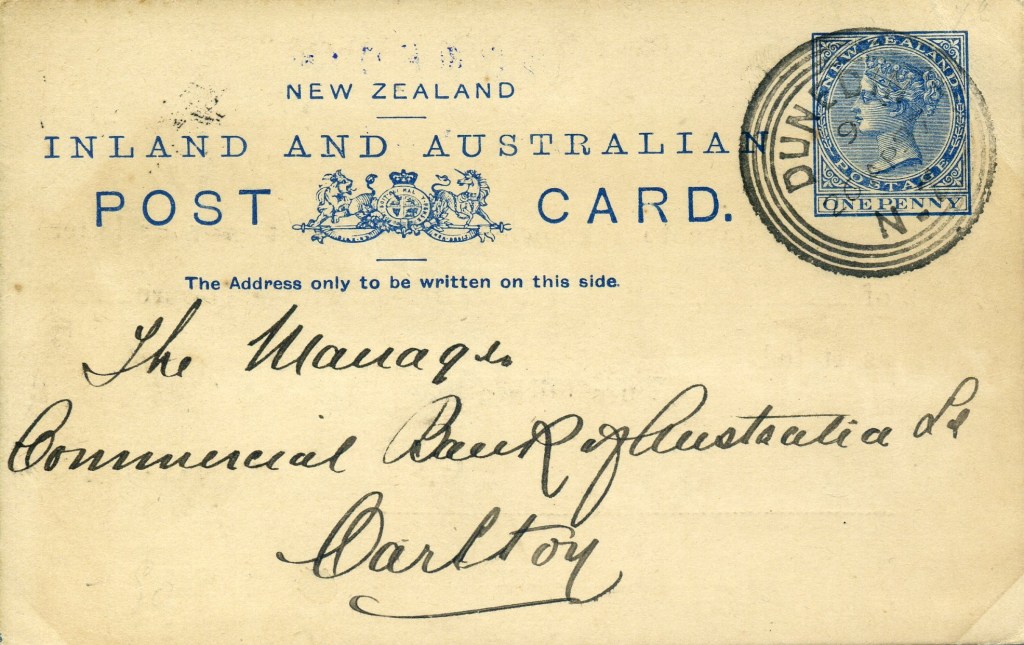 NEW ZEALAND
INLAND AND AUSTRALIAN
POST CARD.
The Address only to be written on this side.
NEW ZEALAND
POSTAGE
ONE PENNY
DUNEDIN
9
AP
N-Z
The Manager
Commercial Bank of Australia Ld
Carlton